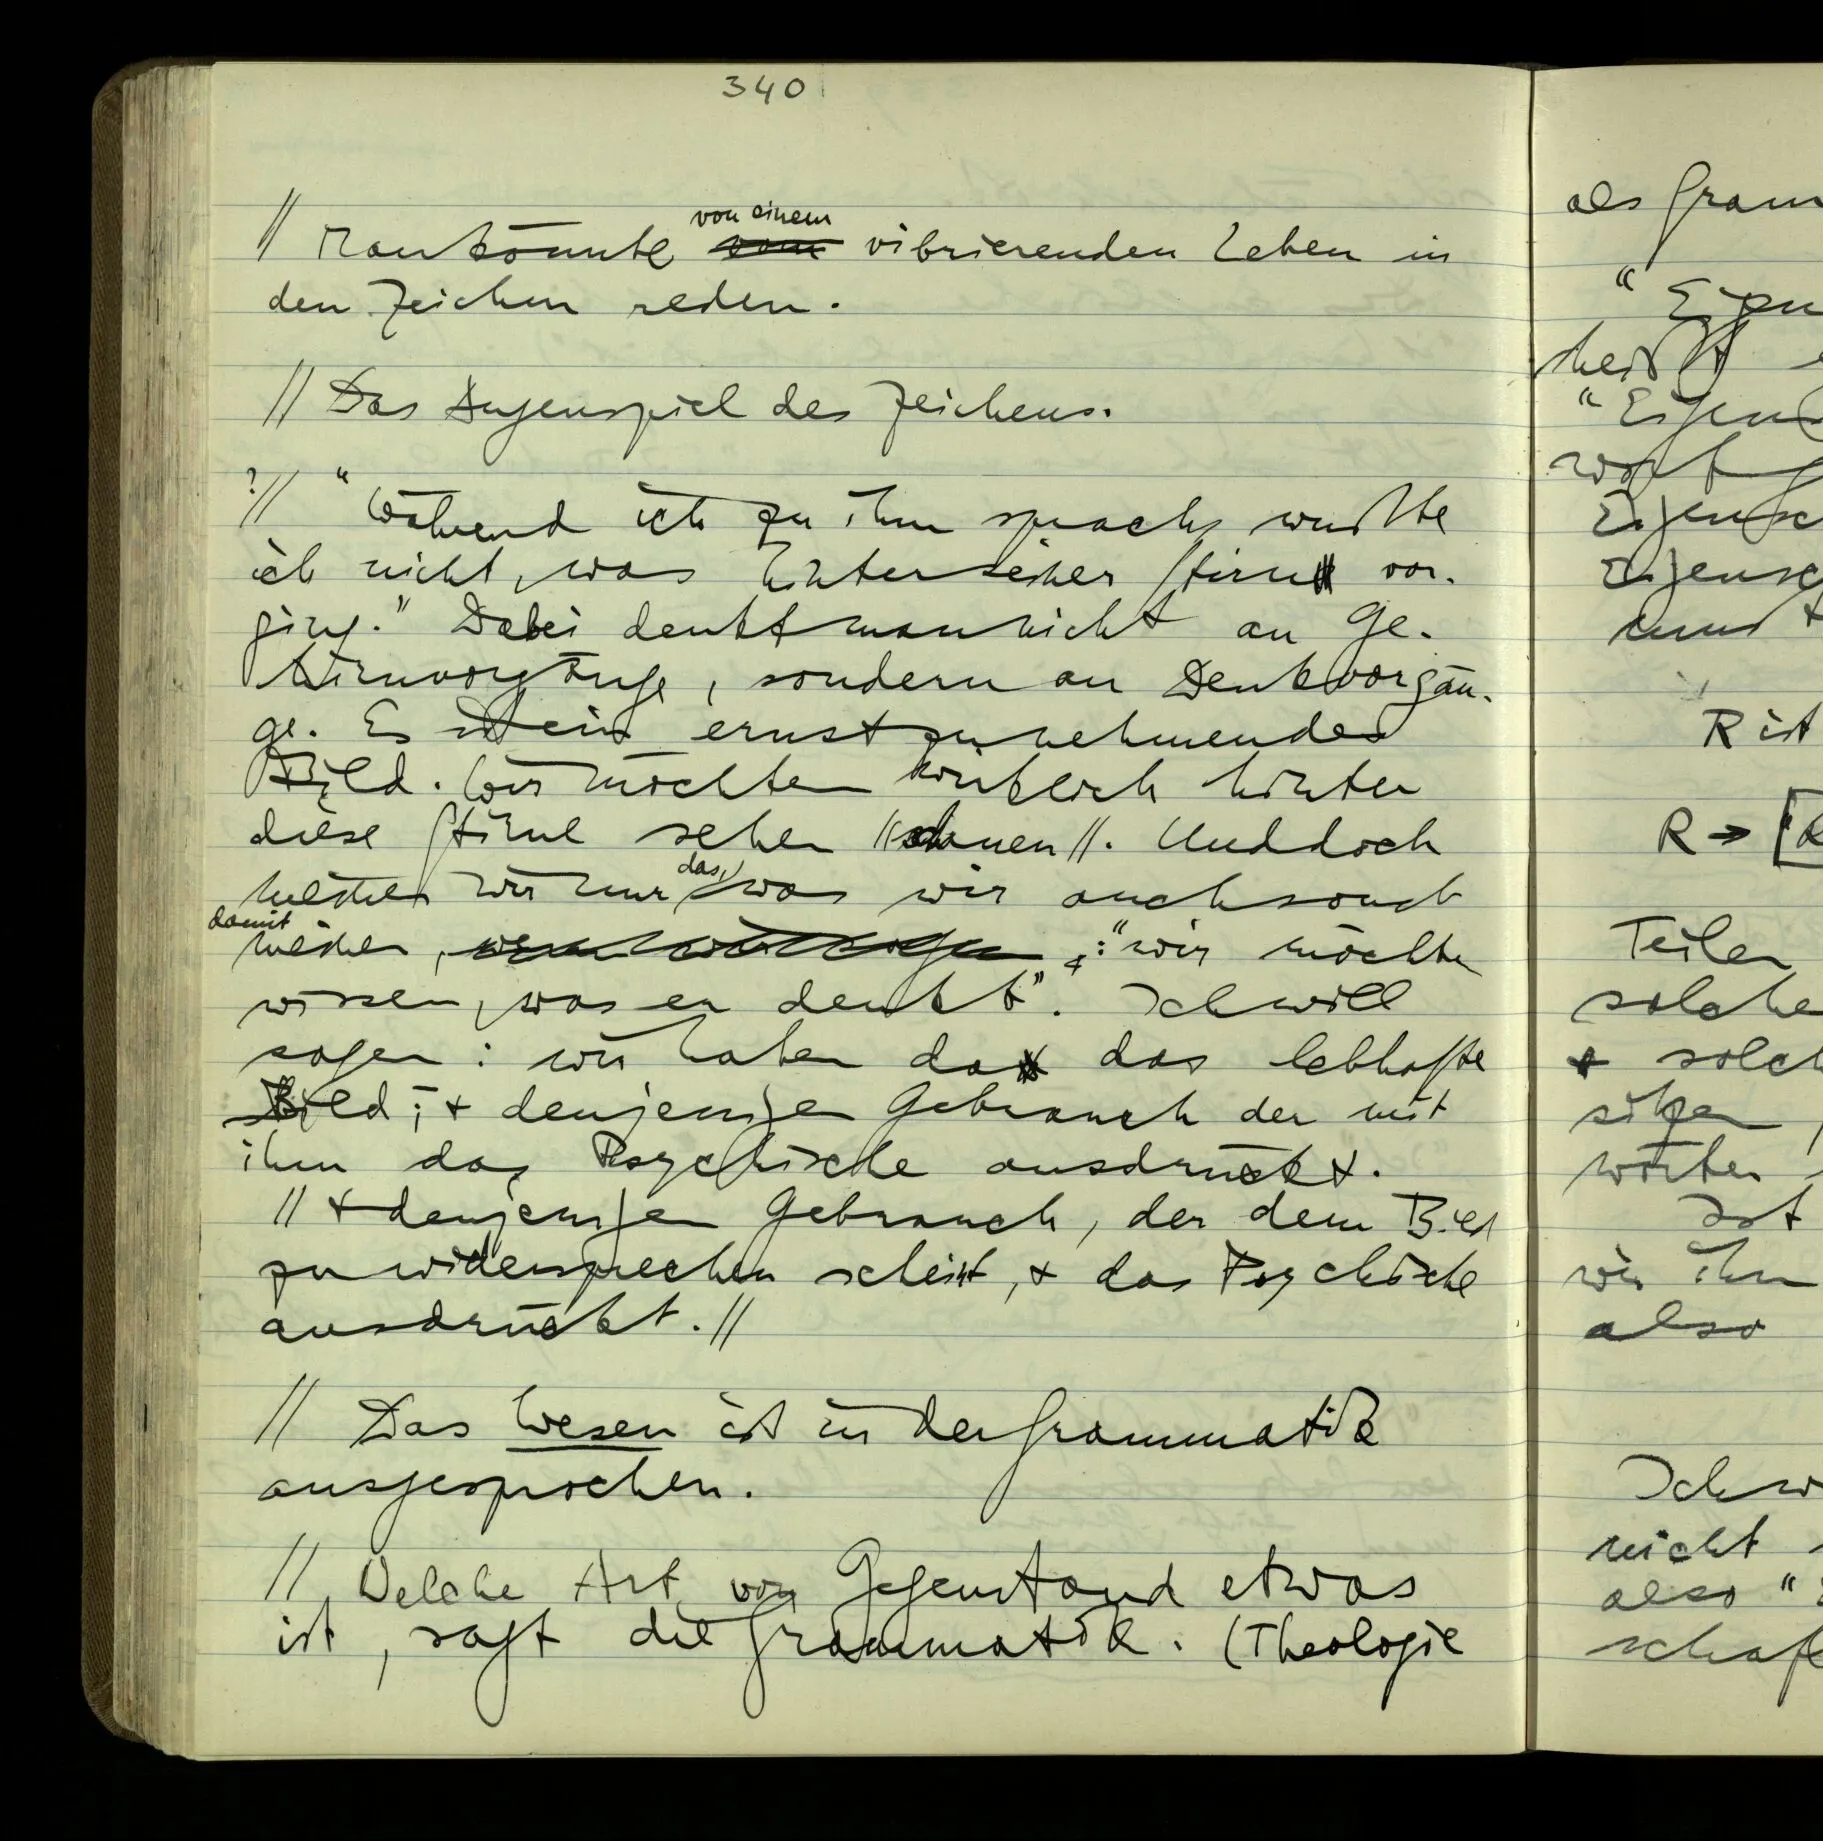 340
// Man könnte von einem vibrierenden Leben in
den Zeichen reden.
// Das Augenspiel des Zeichens.
?// “Während ich zu ihm sprach, wußte
ich nicht, was hinter seiner Stirn vor-
ging.” Dabei denkt man nicht an Ge-
hirnvorgänge, sondern an Denkvorgän-
ge. Es ist ein ernst zu nehmendes
Bild. Wir möchten wirklich hinter
diese Stirne sehen //schauen//. Und doch
meinen wir nur das, was wir auch sonst
damit
meinen, : “wir möchten
wissen, was er denkt”. Ich will
sagen: wir haben da das lebhafte
Bild; + denjenigen Gebrauch der mit
ihm das Psychische ausdrückt.
// + denjenigen Gebrauch, der dem Bild
zu widersprechen scheint, + das Psychische
ausdrückt. //
// Das Wesen ist in der Grammatik
ausgesprochen.
// Welche Art von Gegenstand etwas
ist, sagt die Grammatik. (Theologie
als Gram
“Eigen
heißt
“Eigen
wort
Eigensc
Eigensc
R ist
R →
Teilen
solche
+ solch
wörter
Ist
wir ihn
also
Ich w
nicht
also “
schaf